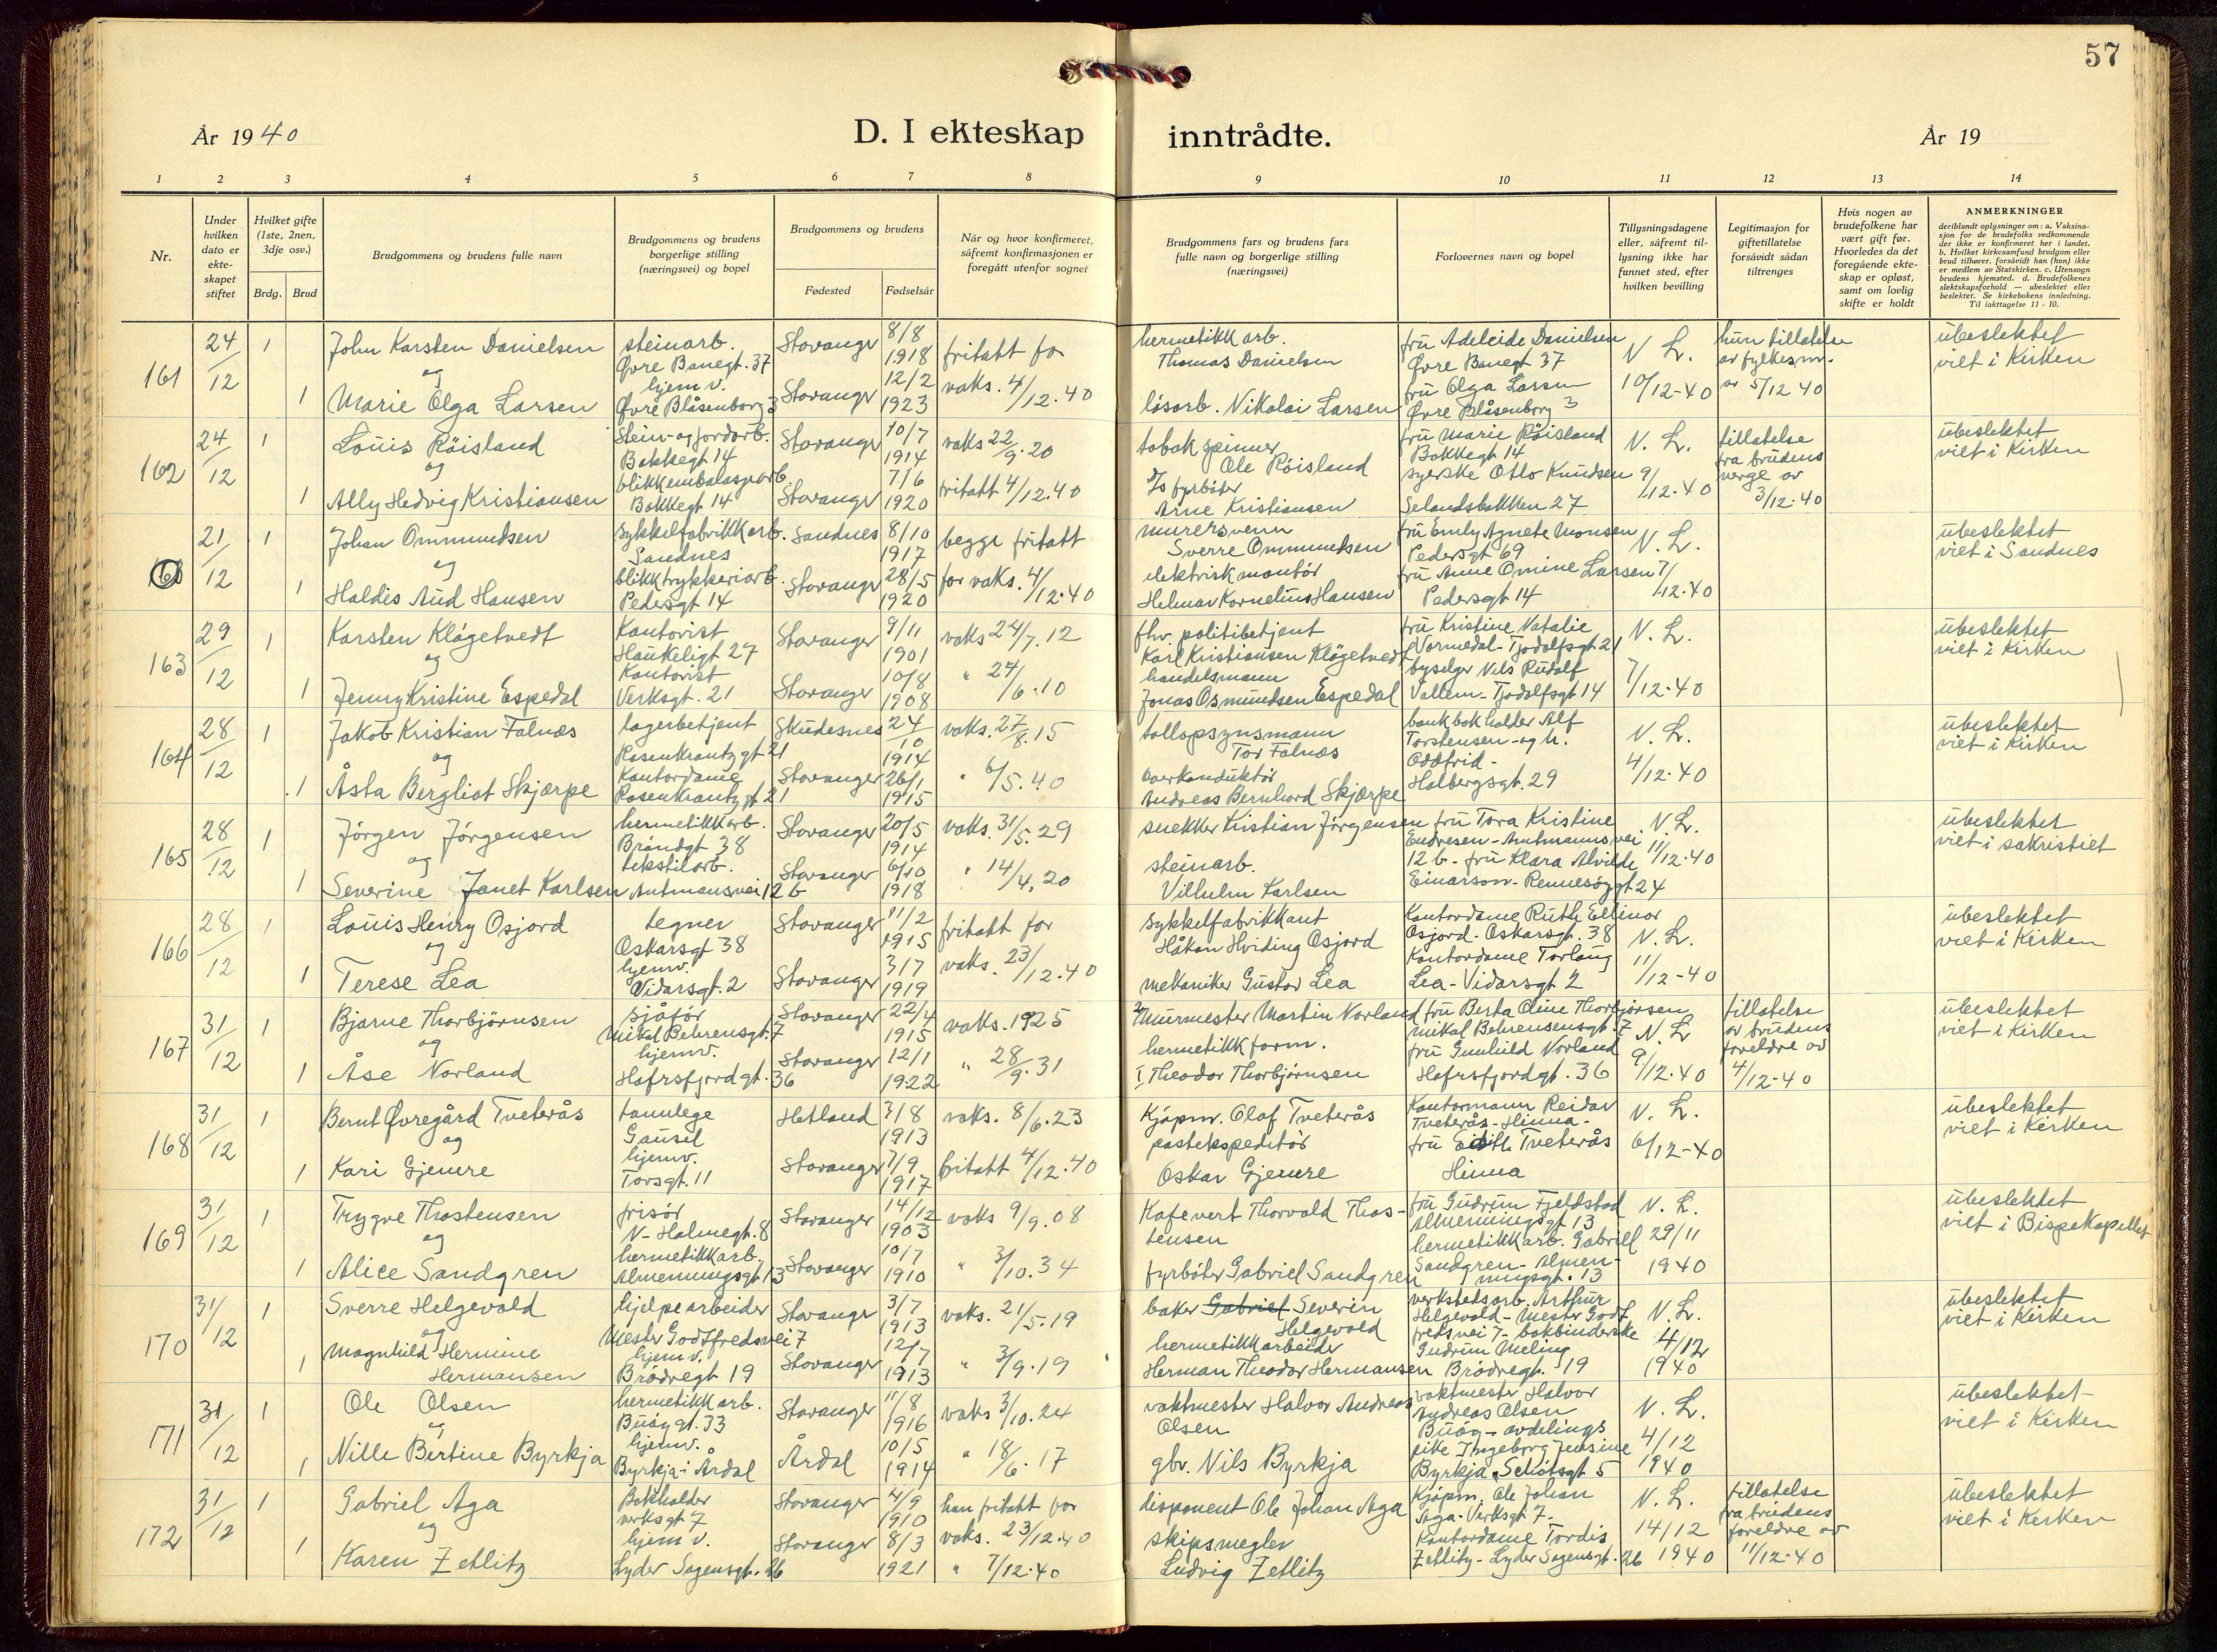 57
År 1940
D. I ekteskap inntrådte.
År 19
1 2 3 4 5 6 7 8 9 10 11 12 13 14
Nr.
Under hvilken dato er ekteskapet stiftet
Hvilket gifte (1ste, 2nen, 3dje osv.)
Brdg. Brud
Brudgommens og brudens fulle navn
Brudgommens og brudens borgerlige stilling (næringsvei) og bopel
Brudgommens og brudens
Fødested Fødselsår
Når og hvor konfirmeret, såfremt konfirmasjonen er foregått utenfor sognet
Brudgommens fars og brudens fars fulle navn og borgerlige stilling (næringsvei)
Forlovernes navn og bopel
Tillysningsdagene eller, såfremt tillysning ikke har funnet sted, efter hvilken bevilling
Legitimasjon for giftetillatelse forsåvidt sådan tiltrenges
Hvis nogen av brudefolkene har vært gift før. Hvorledes da det foregående ekteskap er opløst, samt om lovlig skifte er holdt
ANMERKNINGER
deriblandt oplysninger om: a. Vaksinasjon for de brudefolks vedkommende der ikke er konfirmeret her i landet. b. Hvilket kirkesamfund brudgom eller brud tilhører, forsåvidt han (hun) ikke er medlem av Statskirken. c. Utensogn brudens hjemsted. d. Brudefolkenes slektskapsforhold — ubeslektet eller beslektet. Se kirkebokens innledning. Til iakttagelse 11 - 10.
161 24/12 1 John Karsten Danielsen steinarb. Øvre Banegt. 37 Stavanger 8/8 1918 fritatt for
og
1 Marie Olga Larsen hjemv. Øvre Blåsenborg 3 Stavanger 12/2 1923 vaks. 4/12.40
hermetikk arb. Thomas Danielsen
løsarb. Nikolai Larsen
fru Adeleide Danielsen Øvre Banegt 37
fru Olga Larsen Øvre Blåsenborg 3
N. L. 10/12-40
hun tillatelse av fylkesm. av 5/12 40
ubeslektet viet i Kirken
162 24/12 1 Louis Røisland Stein- og jordarb. Bakkegt 14 Stavanger 10/7 1914 vaks 22/9.20
og
1 Ally Hedvig Kristiansen blikkemballasjearb. Bakkegt 14 Stavanger 7/6 1920 fritatt 4/12.40
tobakspinner Ole Røisland
fyrbøter Arne Kristiansen
fru Marie Røisland Bakkegt 14
syerske Otto Knudsen Selandsbakken 27
N. L. 9/12.40
tillatelse fra brudens verge av 3/12.40
ubeslektet viet i Kirken
21/12 1 Johan Ommundsen sykkelfabrikkarb. Sandnes Sandnes 8/10 1917 begge fritatt
og
1 Haldis Aud Hansen blikktrykkeriarb. Pedersgt 14 Stavanger 28/5 1920 for vaks. 4/12.40
murersvenn Sverre Ommundsen
elektrisk montør Helmar Kornelius Hansen
fru Emly Agnete Monsen Pedersgt 69
fru Anne Omine Larsen Pedersgt 14
N. L. 7/12.40
ubeslektet viet i Sandnes
163 29/12 1 Karsten Kløgetvedt Kontorist Haukeligt 27 Stavanger 9/11 1901 vaks 24/7.12
og
1 Jenny Kristine Espedal Kontorist Verksgt. 21 Stavanger 10/8 1908 " 24/6.10
fhv. politibetjent Karl Kristiansen Kløgetvedt
handelsmann Jonas Osmundsen Espedal
fru Kristine Natalie Vormedal - Tjodolfsgt. 21
byselger Nils Rudolf Vallem - Tjodolfsgt 14
N. L. 7/12.40
ubeslektet viet i Kirken
164 28/12 1 Jakob Kristian Falnæs lagerbetjent Rosenkrantzgt 21 Skudesnes 24/10 1914 vaks. 27/8.15
og
1 Åsta Bergliot Skjærpe Kontordame Rosenkrantzgt 21 Stavanger 26/1 1915 " 6/5.40
tollopsynsmann Tor Falnæs
overkonduktør Andreas Bernhard Skjærpe
bankbokholder Alf Torstensen - og h. Oddfrid - Holbergsgt. 29
N. L. 4/12.40
ubeslektet viet i Kirken
165 28/12 1 Jørgen Jørgensen hermetikkarb. Brandgt 38 Stavanger 20/5 1914 vaks. 31/5.29
og
1 Severine Janet Karlsen tekstilarb. Amtmansvei 12 b Stavanger 6/10 1918 " 14/4.20
snekker Kristian Jørgensen
steinarb. Vilhelm Karlsen
fru Tora Kristine Endresen - Amtmannsvei 12 b - fru Klara Alvilde Einarson - Rennesøygt 24
N. L. 11/12.40
ubeslektet viet i sakristiet
166 28/12 1 Louis Henry Osjord tegner Oskarsgt 38 Stavanger 11/2 1915 fritatt for
og
1 Terese Lea hjemv. Vidarsgt. 2 Stavanger 3/7 1919 vaks. 23/12.40
sykkelfabrikkant Håkon Hviding Osjord
mekaniker Gustav Lea
Kontordame Ruth Ellinor Osjord - Oskarsgt. 38
Kontordame Torlaug Lea - Vidarsgt 2
N. L. 11/12-40
ubeslektet viet i Kirken
167 31/12 1 Bjarne Thorbjørnsen sjåfør Mikal Behrensgt. 7 Stavanger 22/4 1915 vaks. 1925
og
1 Åse Norland hjemv. Hafrsfjordgt. 36 Stavanger 12/1 1922 " 28/9.31
2 Murmester Martin Norland
hermetikkform. 1, Theodor Thorbjørnsen
fru Berta Oline Thorbjørsen Mikal Behrensensgt. 7
fru Gunhild Norland Hafrsfjordgt. 36
N. L 9/12.40
tillatelse av brudens foreldre av 4/12-40
ubeslektet viet i Kirken
168 31/12 1 Bernt Øvregård Tveterås tannlege Gausel Hetland 3/8 1913 vaks. 8/6.23
og
1 Kari Gjemre hjemv. Torsgt. 11 Stavanger 7/9 1917 fritatt 4/12.40
Kjøpm. Olaf Tveterås
postekspeditør Oskar Gjemre
Kontormann Reidar Tveterås - Hinna -
fru Edith Tveterås Hinna
N. L. 6/12-40
ubeslektet viet i Kirken
169 31/12 1 Trygve Thostensen frisør N-Holmegt. 8 Stavanger 14/12 1903 vaks 9/9.08
og
1 Alice Sandgren hermetikkarb. Almenningsgt 13 Stavanger 10/7 1910 " 3/10.34
Kafevert Thorvald Thostensen
fyrbøter Gabriel Sandgren
fru Gudrun Fjeldstad Almenningsgt 13
hermetikkarb. Gabriel Sandgren - Almenningsgt. 13
N. L. 29/11 1940
ubeslektet viet i Bispekapellet
170 31/12 1 Sverre Helgevold hjelpearbeider Mester Godtfredsvei 7 Stavanger 3/7 1913 vaks. 21/5.19
og
1 Magnhild Hermine Hermansen hjemv. Brødregt 19 Stavanger 12/7 1913 " 3/9.19
baker Gabriel Severin Helgevold
hermetikkarbeider Herman Theodor Hermansen
verkstedsarb. Arthur Helgevold - Mester Godtfredsvei 7 - bokbinderske Gudrun Meling Brødregt. 19
N. L. 4/12 1940
ubeslektet viet i Kirken
171 31/12 1 Ole Olsen hermetikkarb. Buøygt. 33 Stavanger 11/8 1916 vaks 3/10.24
og
1 Nille Bertine Byrkja hjemv. Byrkja i Årdal Årdal 10/5 1914 " 18/6.17
vaktmester Halvor Andreas Olsen
gbr. Nils Byrkja
vaktmester Halvor Andreas Olsen Buøy - avdelings pike Ingeborg Jensine Byrkja Schøtsgt 5
N. L. 4/12 1940
ubeslektet viet i Kirken
172 31/12 1 Gabriel Aga Bokholder Verksgt 7 Stavanger 4/9 1910 han fritatt for vaks. 23/12.40
og
1 Karen Zetlitz hjemv. Lyder Sagensgt. 26 Stavanger 8/3 1921 " 7/12.40
disponent Ole Johan Aga
skipsmegler Ludvig Zetlitz
Kjøpm. Ole Johan Aga - Verksgt 7.
Kontordame Tordis Zetlitz - Lyder Sagensgt. 26
N. L. 14/12 1940
tillatelse fra brudens foreldre av 11/12.40
ubeslektet viet i Kirken